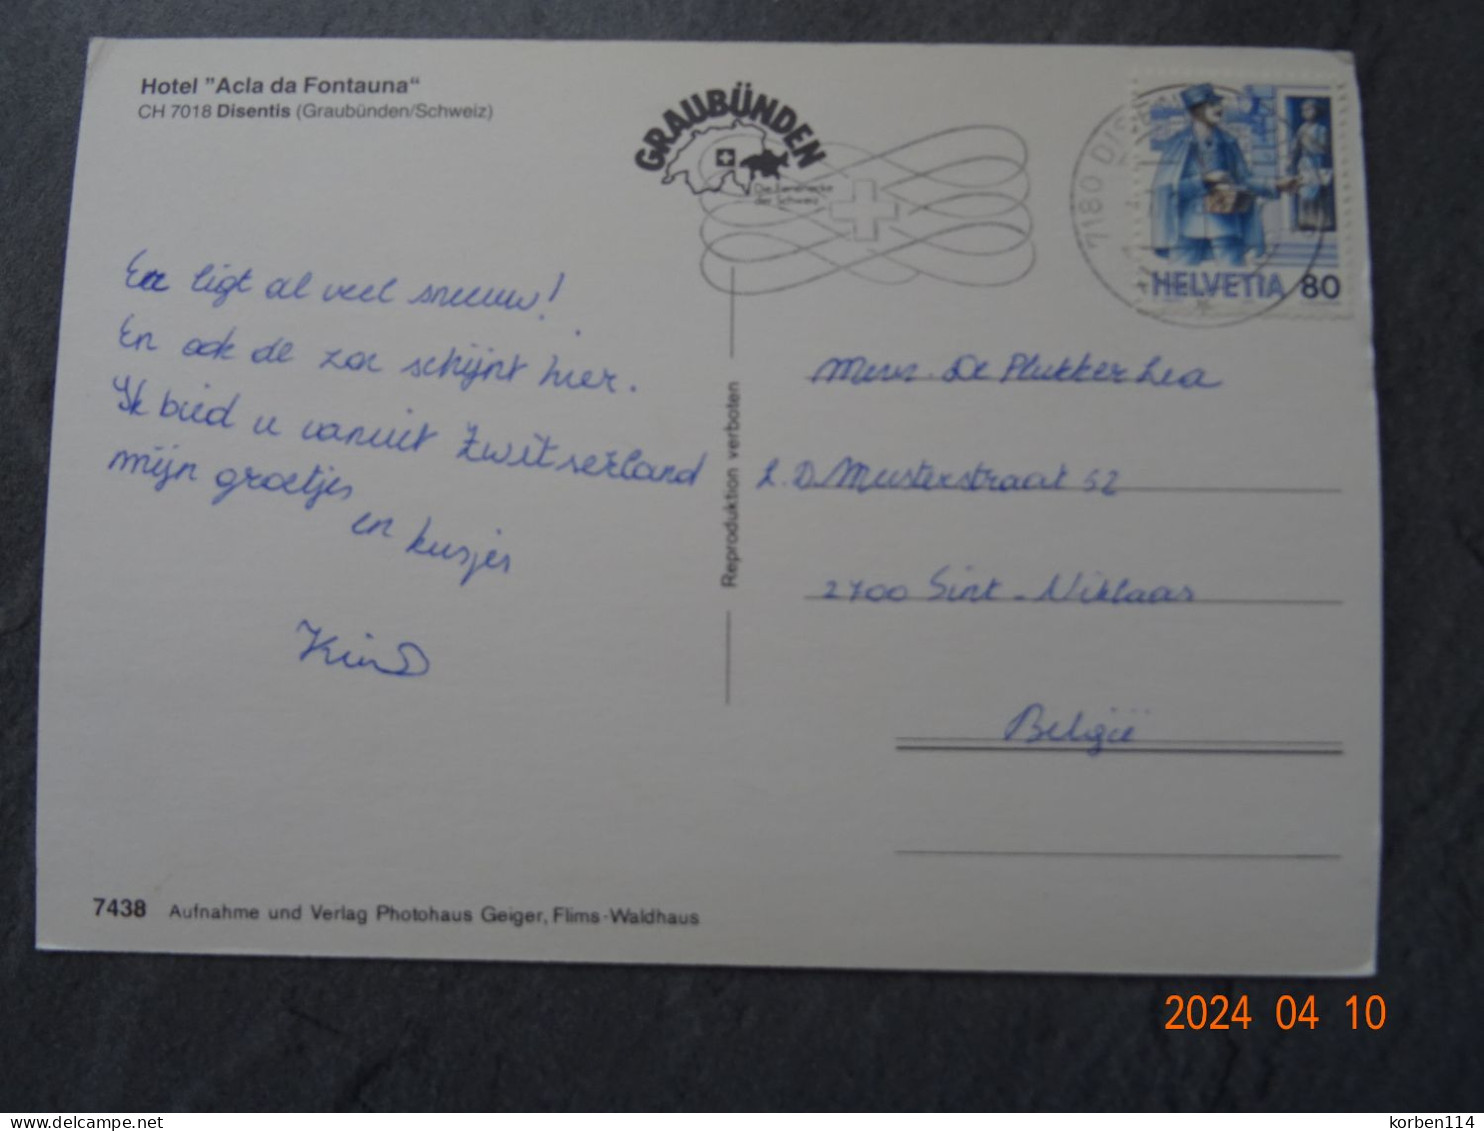 Hotel "Acla da Fontauna"
CH 7018 Disentis (Graubünden/Schweiz)
GRAUBÜNDEN
7180 DIS
HELVETIA 80
Er ligt al veel sneeuw!
En ook de zon schijnt hier.
Ik bied u vanuit Zwitserland
mijn groetjes
en kusjes
Reproduktion verboten
Mevr. De Plukker Lea
L.D. Meesterstraat 52
2700 Sint-Niklaas
België
7438 Aufnahme und Verlag Photohaus Geiger, Flims-Waldhaus
2024 04 10
delcampe.net
korben114